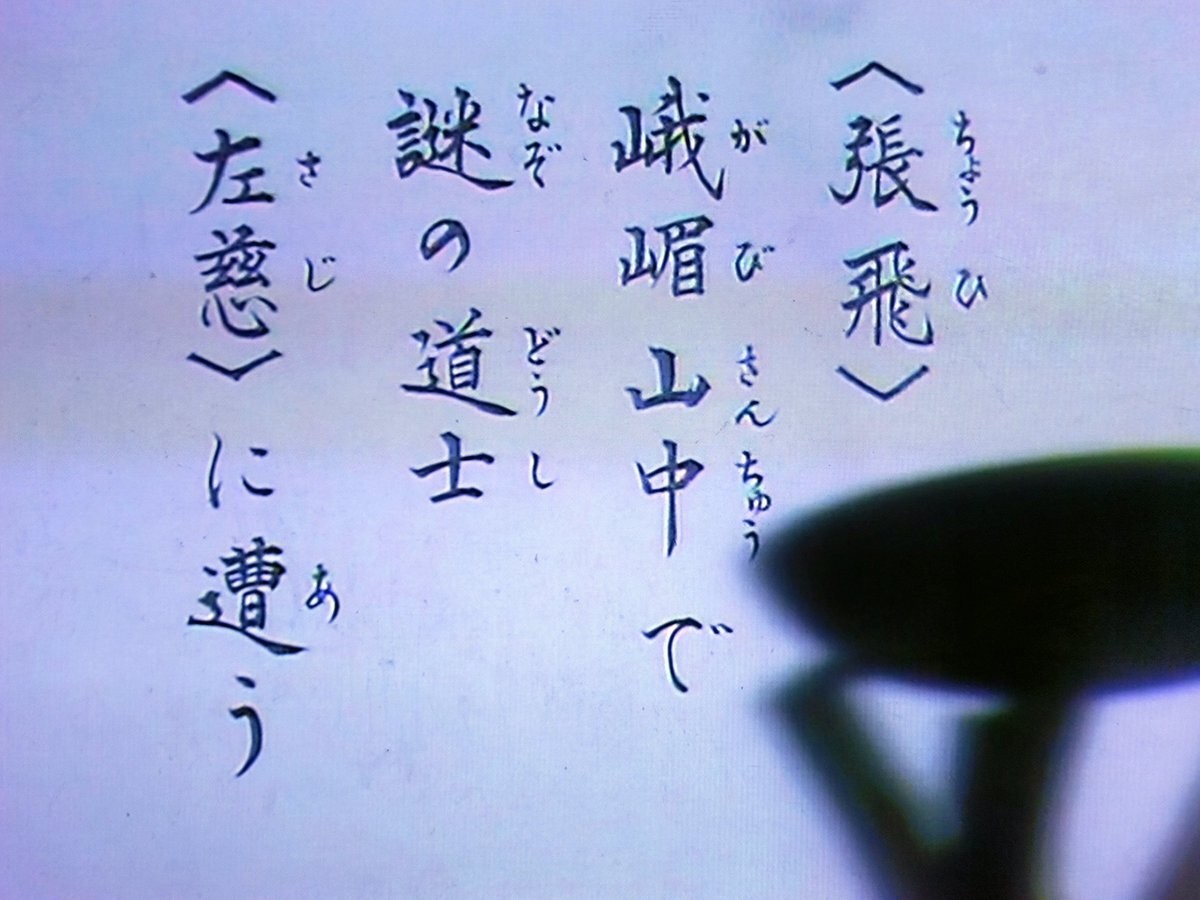 〈張飛〉
ちょうひ
峨嵋山中で
がびさんちゅう
謎の道士
なぞどうし
〈左慈〉に遭う
さじあ